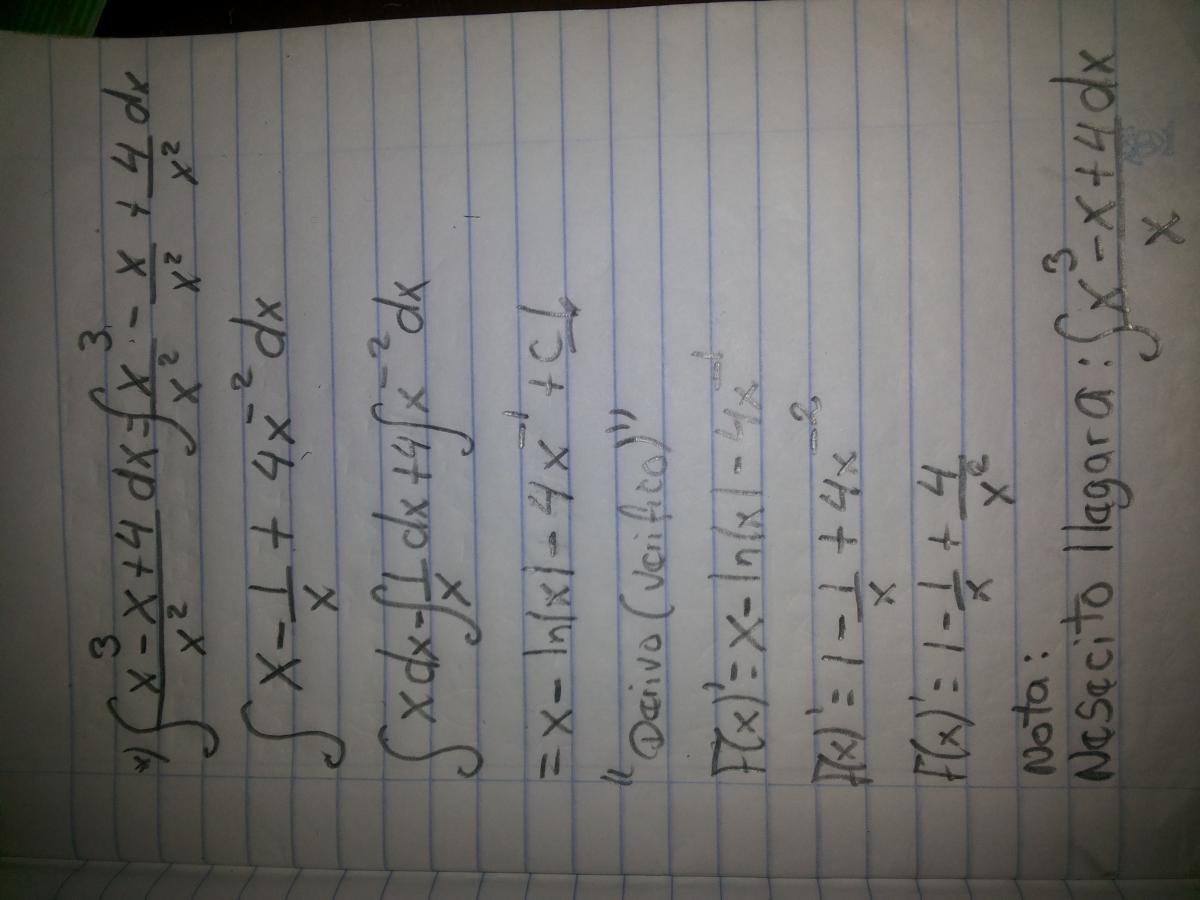 *) ∫ x³ - x + 4 / x² dx = ∫ x³ / x² - x / x² + 4 / x² dx
∫ x - 1/x + 4x⁻² dx
∫ x dx - ∫ 1/x dx + 4 ∫ x⁻² dx
= x - ln|x| - 4x⁻¹ + C
"Derivo (Verifico)"
F(x)' = x - ln|x| - 4x⁻¹
F(x)' = 1 - 1/x + 4x⁻²
F(x)' = 1 - 1/x + 4/x²
Nota:
Nesecito llegar a: ∫ x³ - x + 4 dx / x